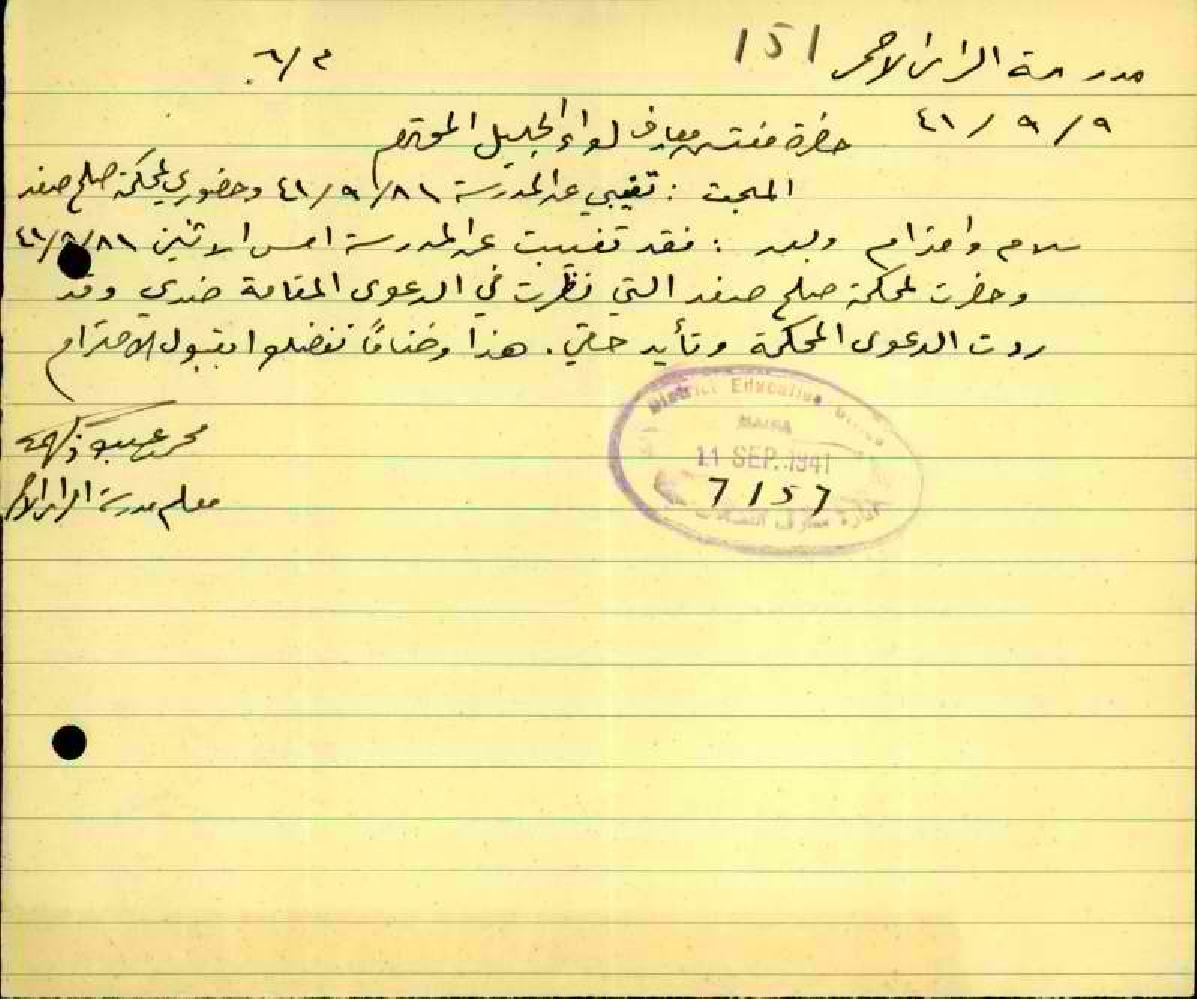 مدرسة الراس الاحمر 151
م/٦
٤١/٩/٩
حضرة مفتش معارف لواء الجليل المحترم
المبحث : تغيبي عن المدرسة ٤١/٩/٨ وحضوري لمحكمة صلح صفد
سلام واحترام وبعد : فقد تغيبت عن المدرسة امس الاثنين ٤١/٩/٨
وحضرت لمحكمة صلح صفد التي نظرت في الدعوى المقامة ضدي وقد
ردت الدعوى المحكمة وتأيد حقي. هذا وختاماً تفضلوا بقبول الاحترام
معلم مدرسة الراس الاحمر
District Education Office
HAIFA
11 SEP. 1941
7157
ادارة معارف